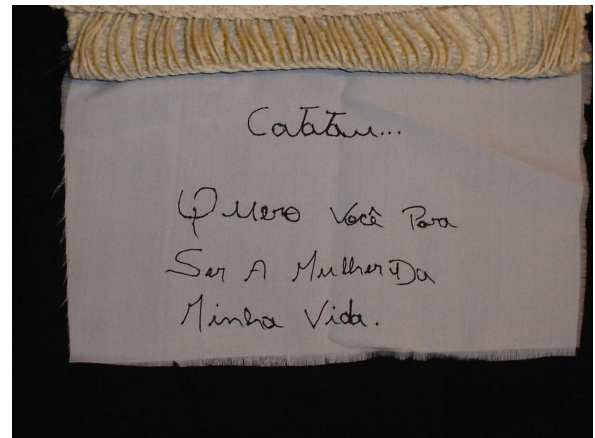 Catatau...
Quero Você Para
Ser A Mulher Da
Minha Vida.